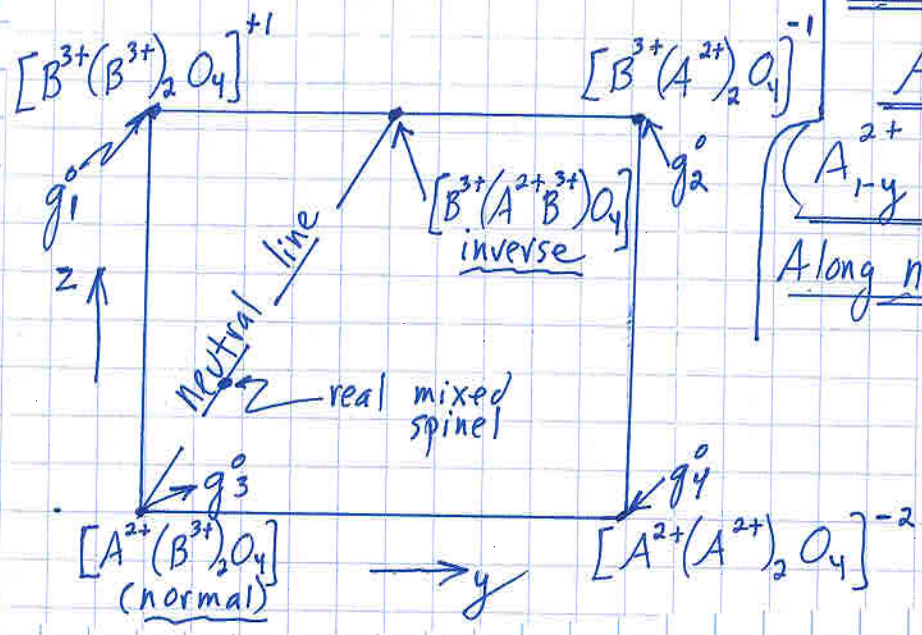 [B³⁺(B³⁺)₂O₄]⁺¹
[B³⁺(A²⁺)₂O₄]⁻¹
g₁°
g₂°
[B³⁺(A²⁺B³⁺)O₄]
inverse
z
neutral line
real mixed
spinel
g₃°
g₄°
[A²⁺(B³⁺)₂O₄]
(normal)
y
[A²⁺(A²⁺)₂O₄]⁻²
A
(A²⁺₁₋y
Along n